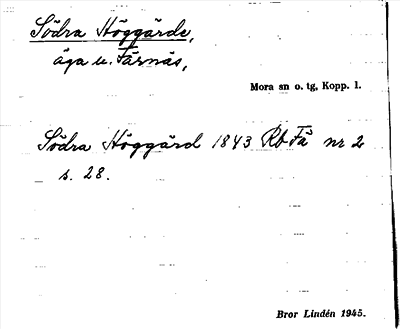 Södra Höggärde,
äga u. Färnäs,
Mora sn o. tg, Kopp. l.
Södra Höggärd 1843 Rb Fä nr 2
s. 28.
Bror Lindén 1945.